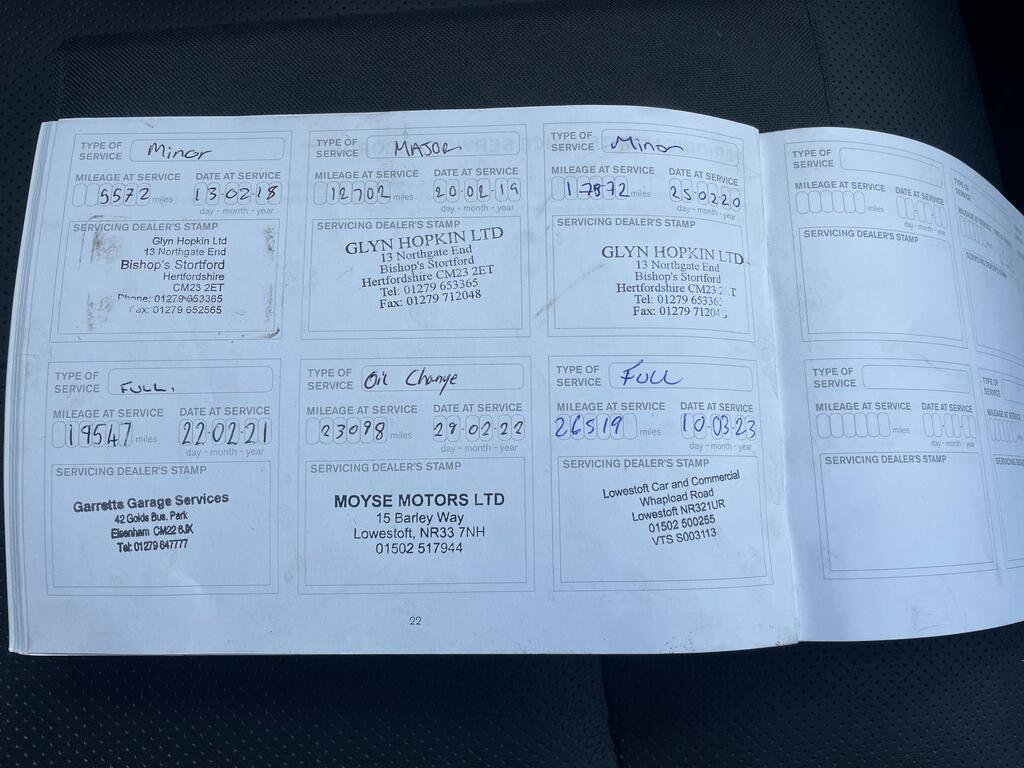 TYPE OF SERVICE Minor
MILEAGE AT SERVICE DATE AT SERVICE
5572 miles 13-02-18
day - month - year
SERVICING DEALER'S STAMP
Glyn Hopkin Ltd
13 Northgate End
Bishop's Stortford
Hertfordshire
CM23 2ET
Phone: 01279 653365
Fax: 01279 652565
TYPE OF SERVICE MAJOR
MILEAGE AT SERVICE DATE AT SERVICE
12702 miles 20-02-19
day - month - year
SERVICING DEALER'S STAMP
GLYN HOPKIN LTD
13 Northgate End
Bishop's Stortford
Hertfordshire CM23 2ET
Tel: 01279 653365
Fax: 01279 712048
TYPE OF SERVICE Minor
MILEAGE AT SERVICE DATE AT SERVICE
17872 miles 25-02-20
day - month - year
SERVICING DEALER'S STAMP
GLYN HOPKIN LTD
13 Northgate End
Bishop's Stortford
Hertfordshire CM23 2ET
Tel: 01279 65336
Fax: 01279 7120
TYPE OF SERVICE FULL.
MILEAGE AT SERVICE DATE AT SERVICE
19547 miles 22-02-21
day - month - year
SERVICING DEALER'S STAMP
Garretts Garage Services
42 Golds Bus. Park
Elsenham CM22 6JX
Tel: 01279 647777
TYPE OF SERVICE Oil Change
MILEAGE AT SERVICE DATE AT SERVICE
23098 miles 28-02-22
day - month - year
SERVICING DEALER'S STAMP
MOYSE MOTORS LTD
15 Barley Way
Lowestoft, NR33 7NH
01502 517944
TYPE OF SERVICE FULL
MILEAGE AT SERVICE DATE AT SERVICE
26519 miles 10-03-23
day - month - year
SERVICING DEALER'S STAMP
Lowestoft Car and Commercial
Whapload Road
Lowestoft NR321UR
01502 500255
VTS S003113
22
TYPE OF SERVICE
MILEAGE AT SERVICE DATE AT SERVICE
miles day - month - year
SERVICING DEALER'S STAMP
TYPE OF SERVICE
MILEAGE AT SERVICE DATE AT SERVICE
miles day - month - year
SERVICING DEALER'S STAMP
TYPE OF SERVICE
MILEAGE AT SERVICE
TYPE OF SERVICE
MILEAGE AT SERVICE
SERVICING DEALER'S